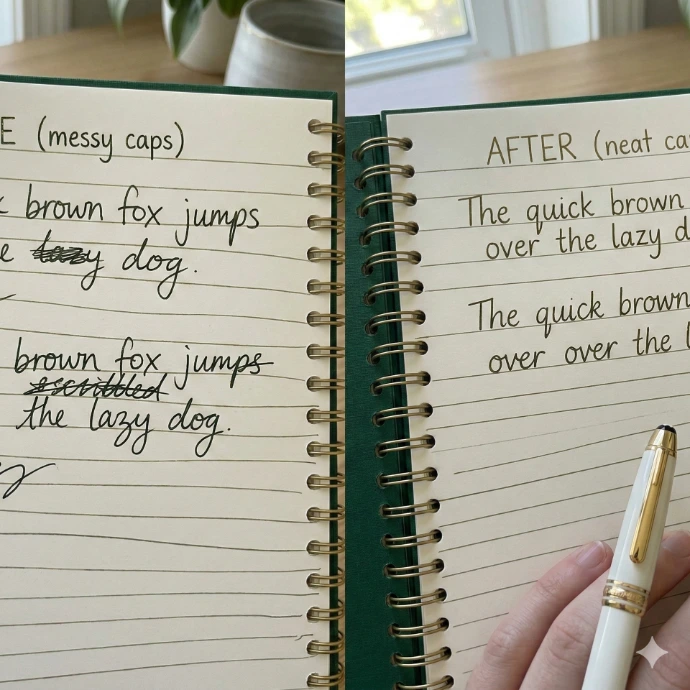 E (messy caps)
k brown fox jumps
e lazy dog.
brown fox jumps
scribbled
the lazy dog.
y
AFTER (neat ca
The quick brown
over the lazy d
The quick brown
over over the l